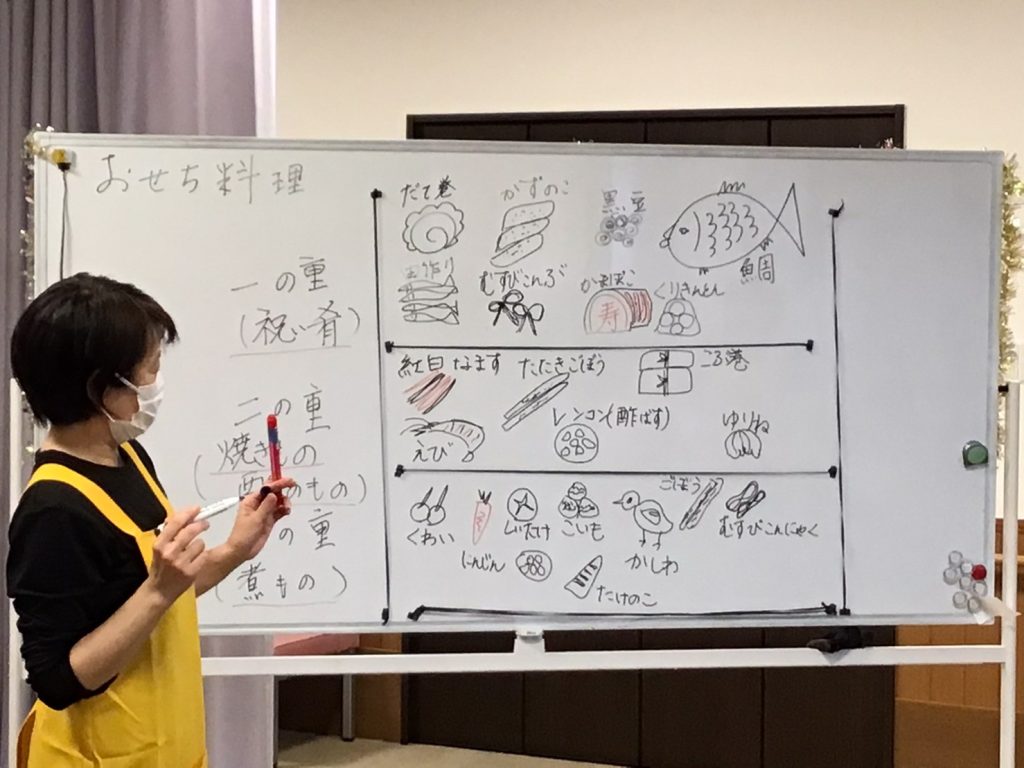 おせち料理
一の重
(祝い肴)
二の重
焼きもの
のもの)
の重
(煮もの)
だて巻
かずのこ
黒豆
鯛
むすびこんぶ
かまぼこ
寿
くりきんとん
紅白なます
たたきごぼう
えび
レンコン(酢ばす)
ゆりね
くわい
にんじん
しいたけ
こいも
かしわ
ごぼう
むすびこんにゃく
たけのこ